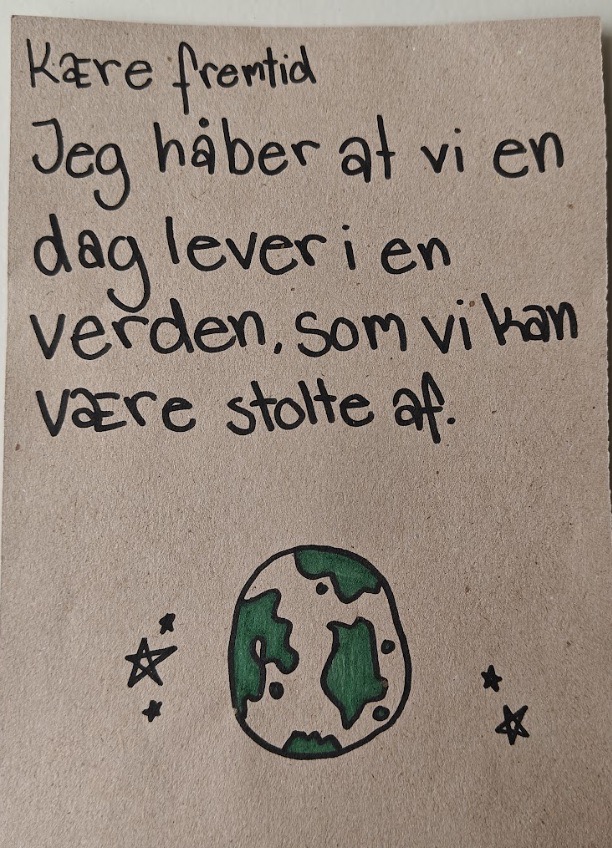 Kære fremtid
Jeg håber at vi en
dag lever i en
verden, som vi kan
være stolte af.